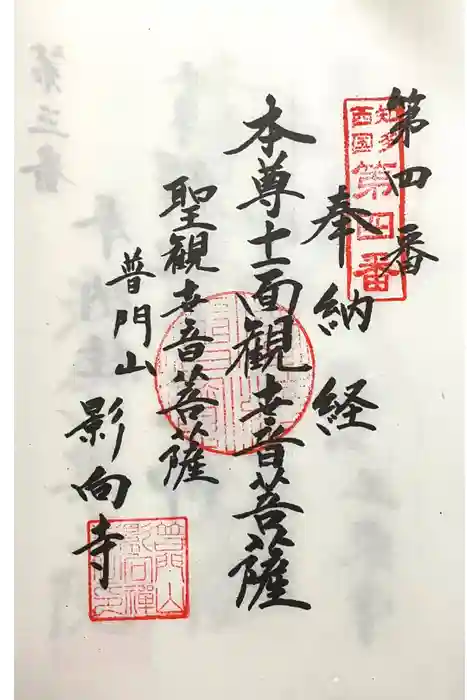 第四番
知多
西国
第四番
奉納経
本尊十一面観世音菩薩
聖観世音菩薩
普門山
影向寺